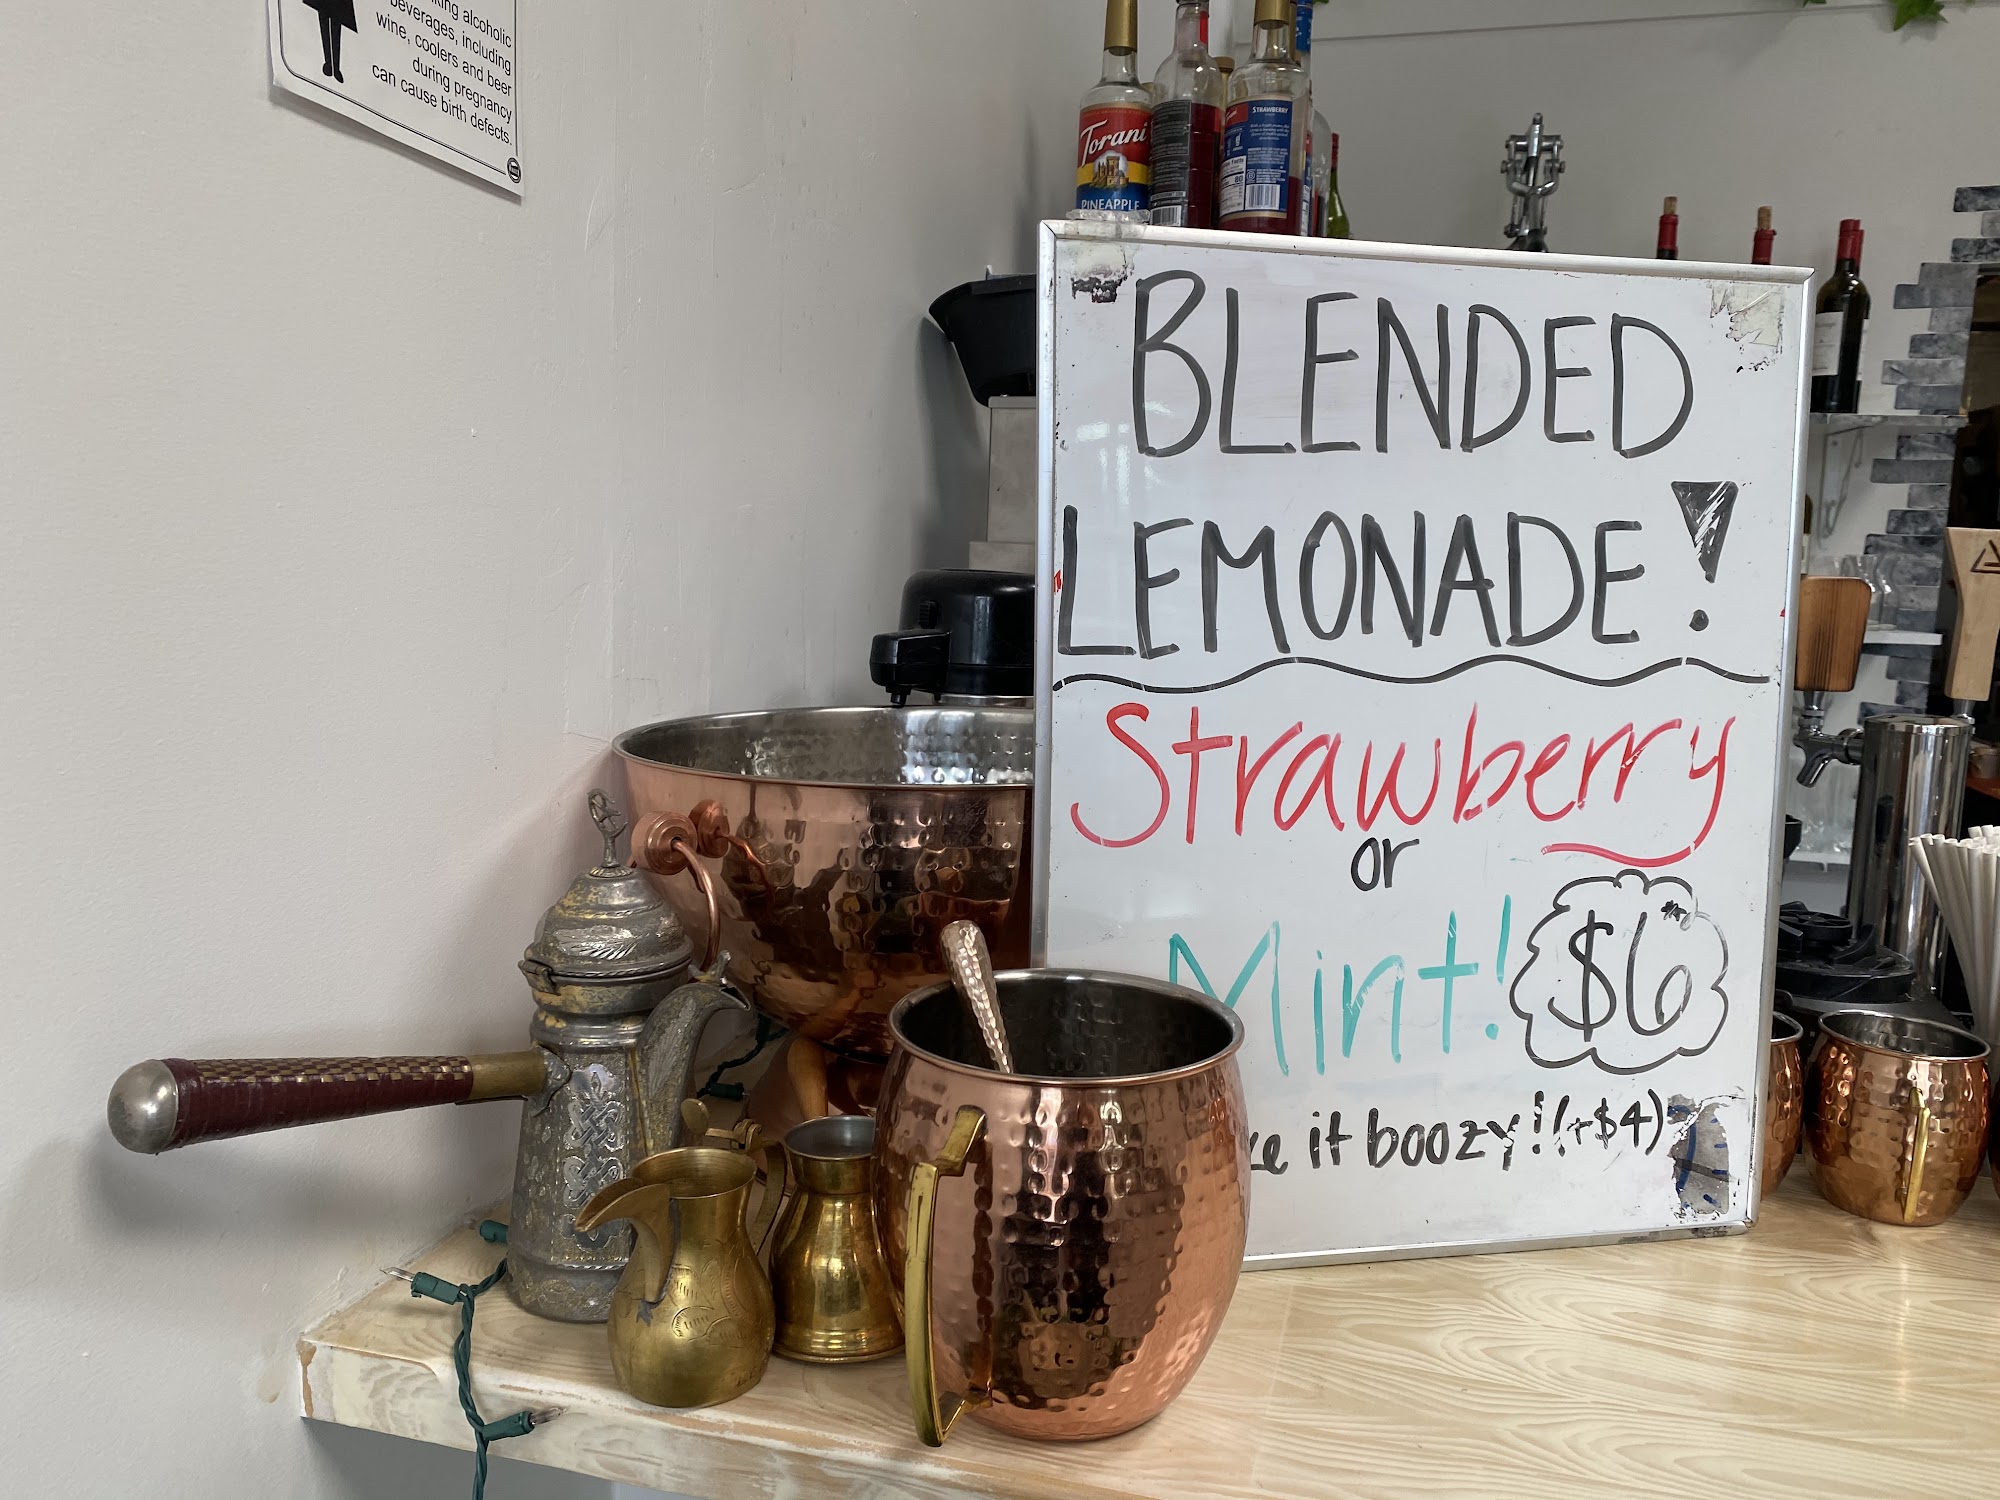 alcoholic
beverages, including
wine, coolers and beer
during pregnancy
can cause birth defects.
Torani
PINEAPPLE
STRAWBERRY
BLENDED
LEMONADE!
Strawberry
or
Mint!
$6
it boozy! (+$4)